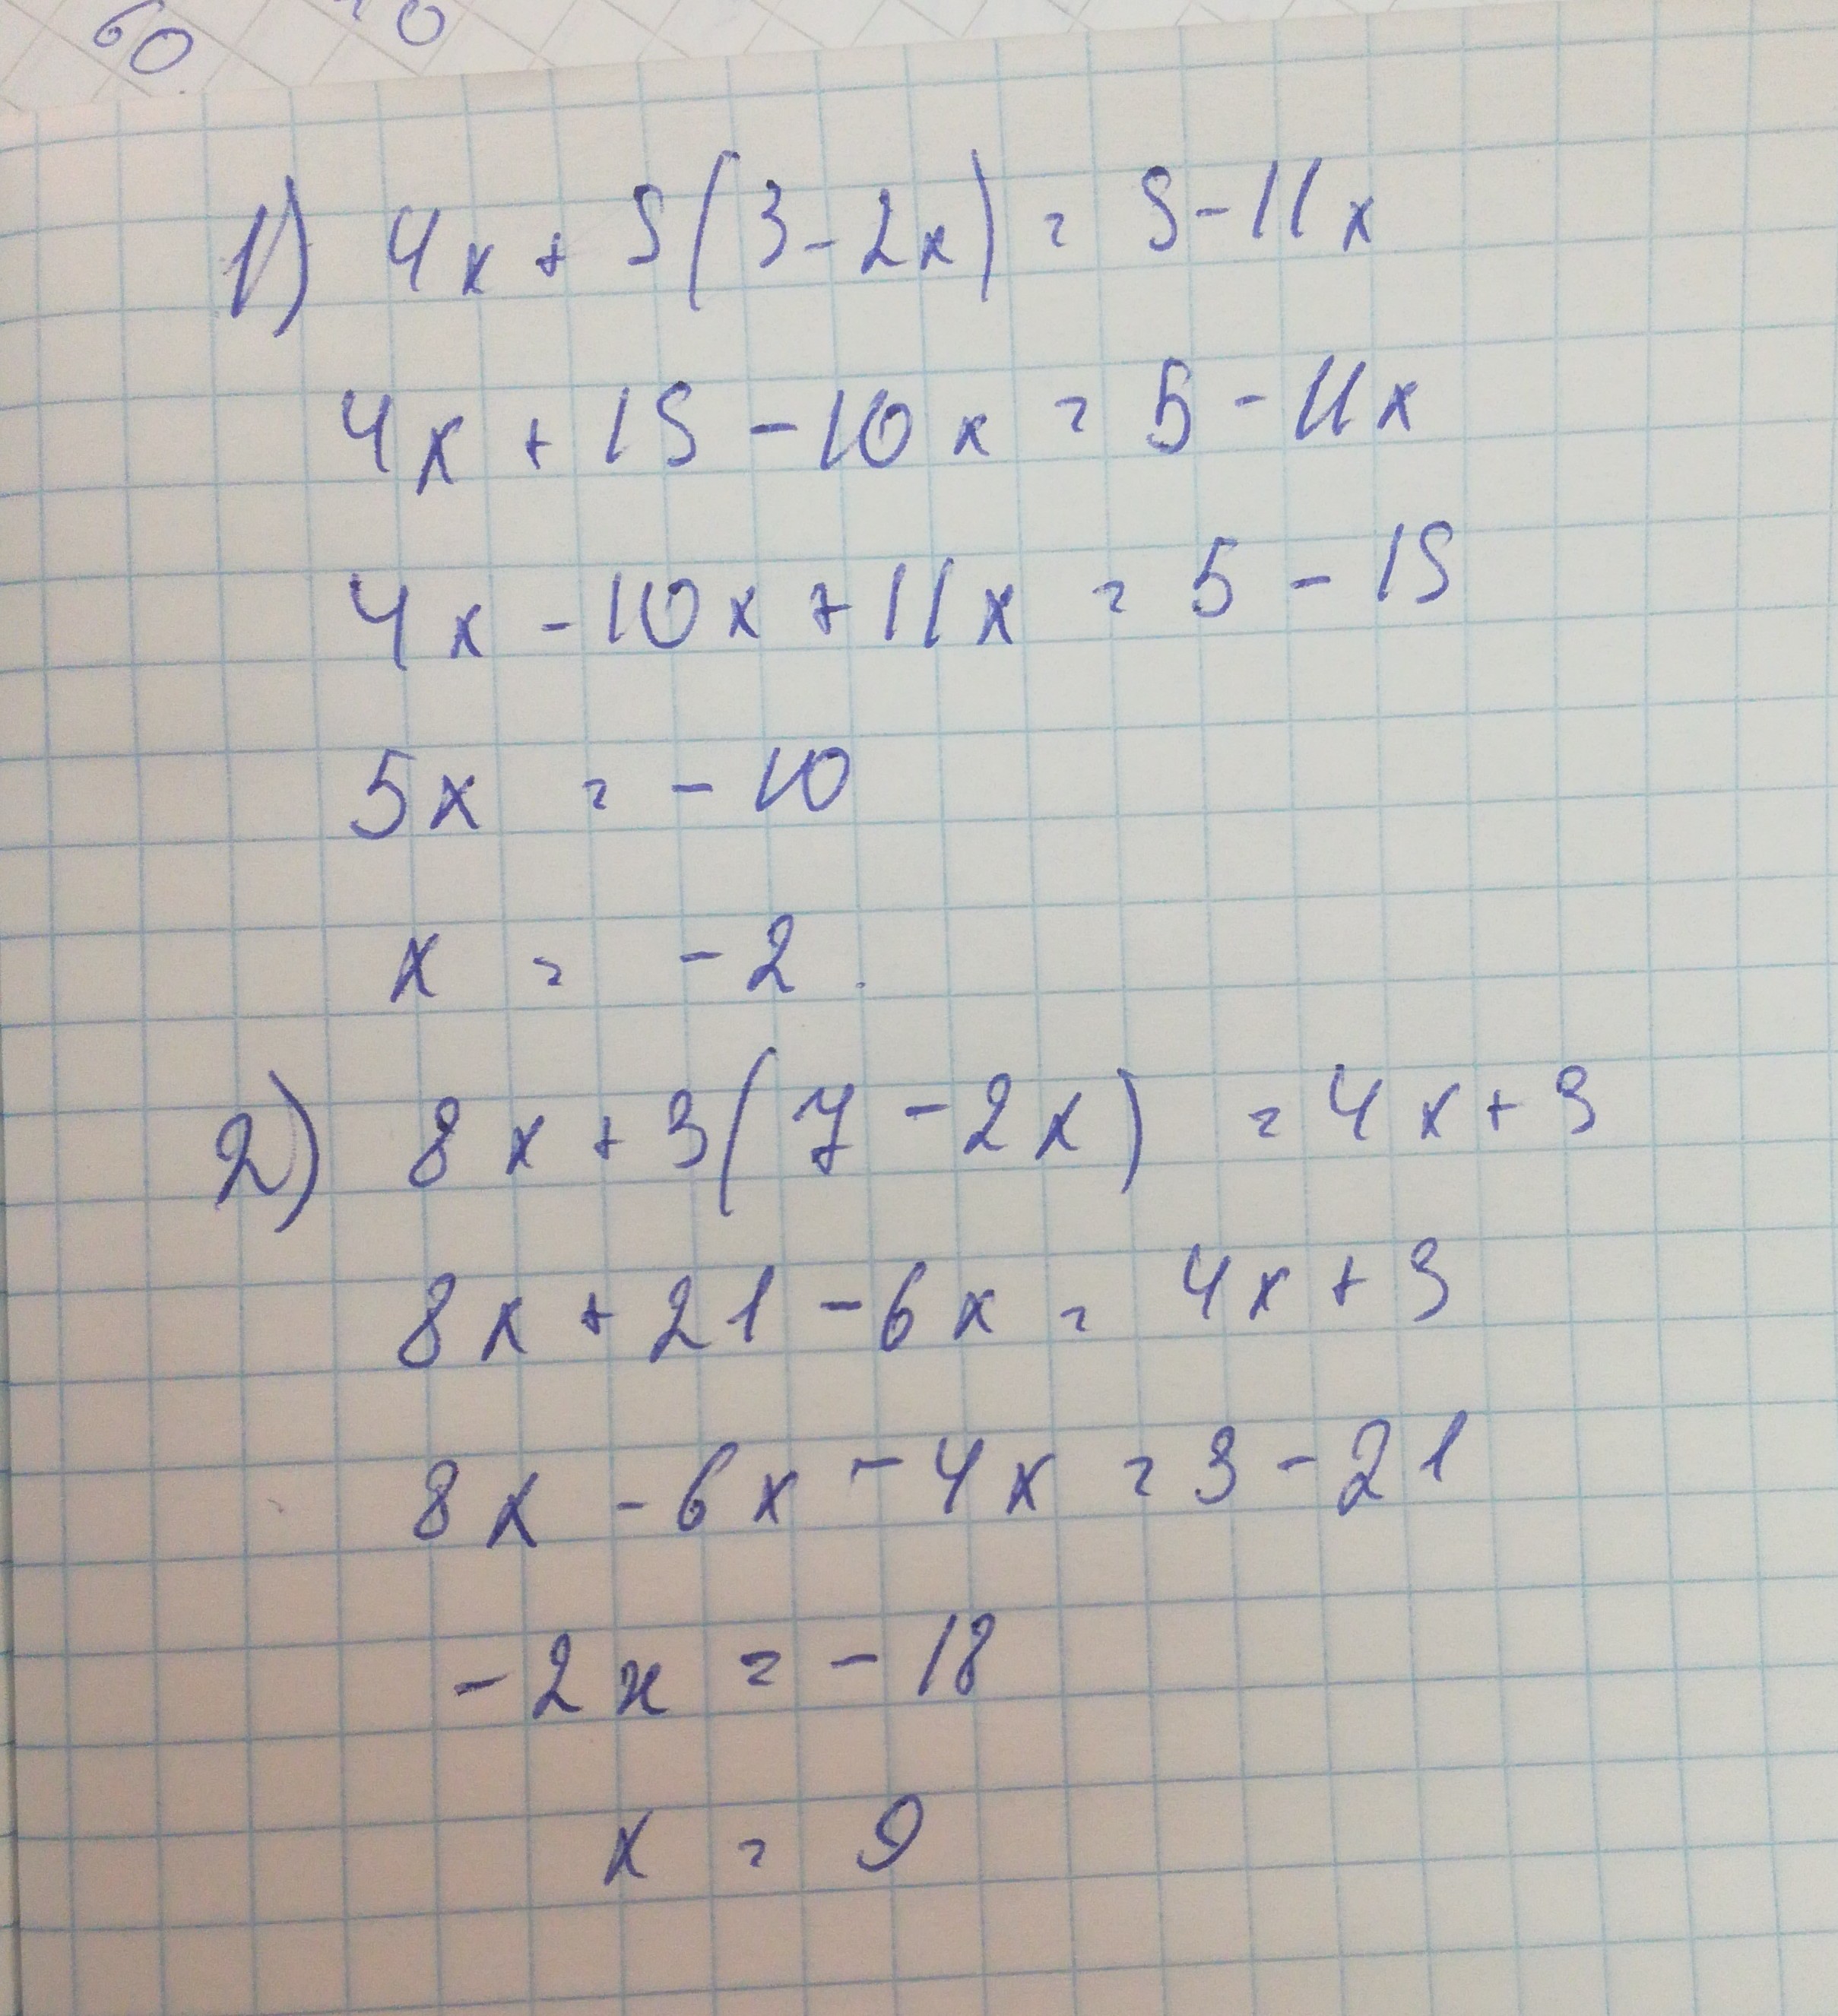 60
0
1) 4x + 5(3 - 2x) = 5 - 11x
4x + 15 - 10x = 5 - 11x
4x - 10x + 11x = 5 - 15
5x = - 10
x = - 2.
2) 8x + 3(7 - 2x) = 4x + 3
8x + 21 - 6x = 4x + 3
8x - 6x - 4x = 3 - 21
- 2x = - 18
x = 9